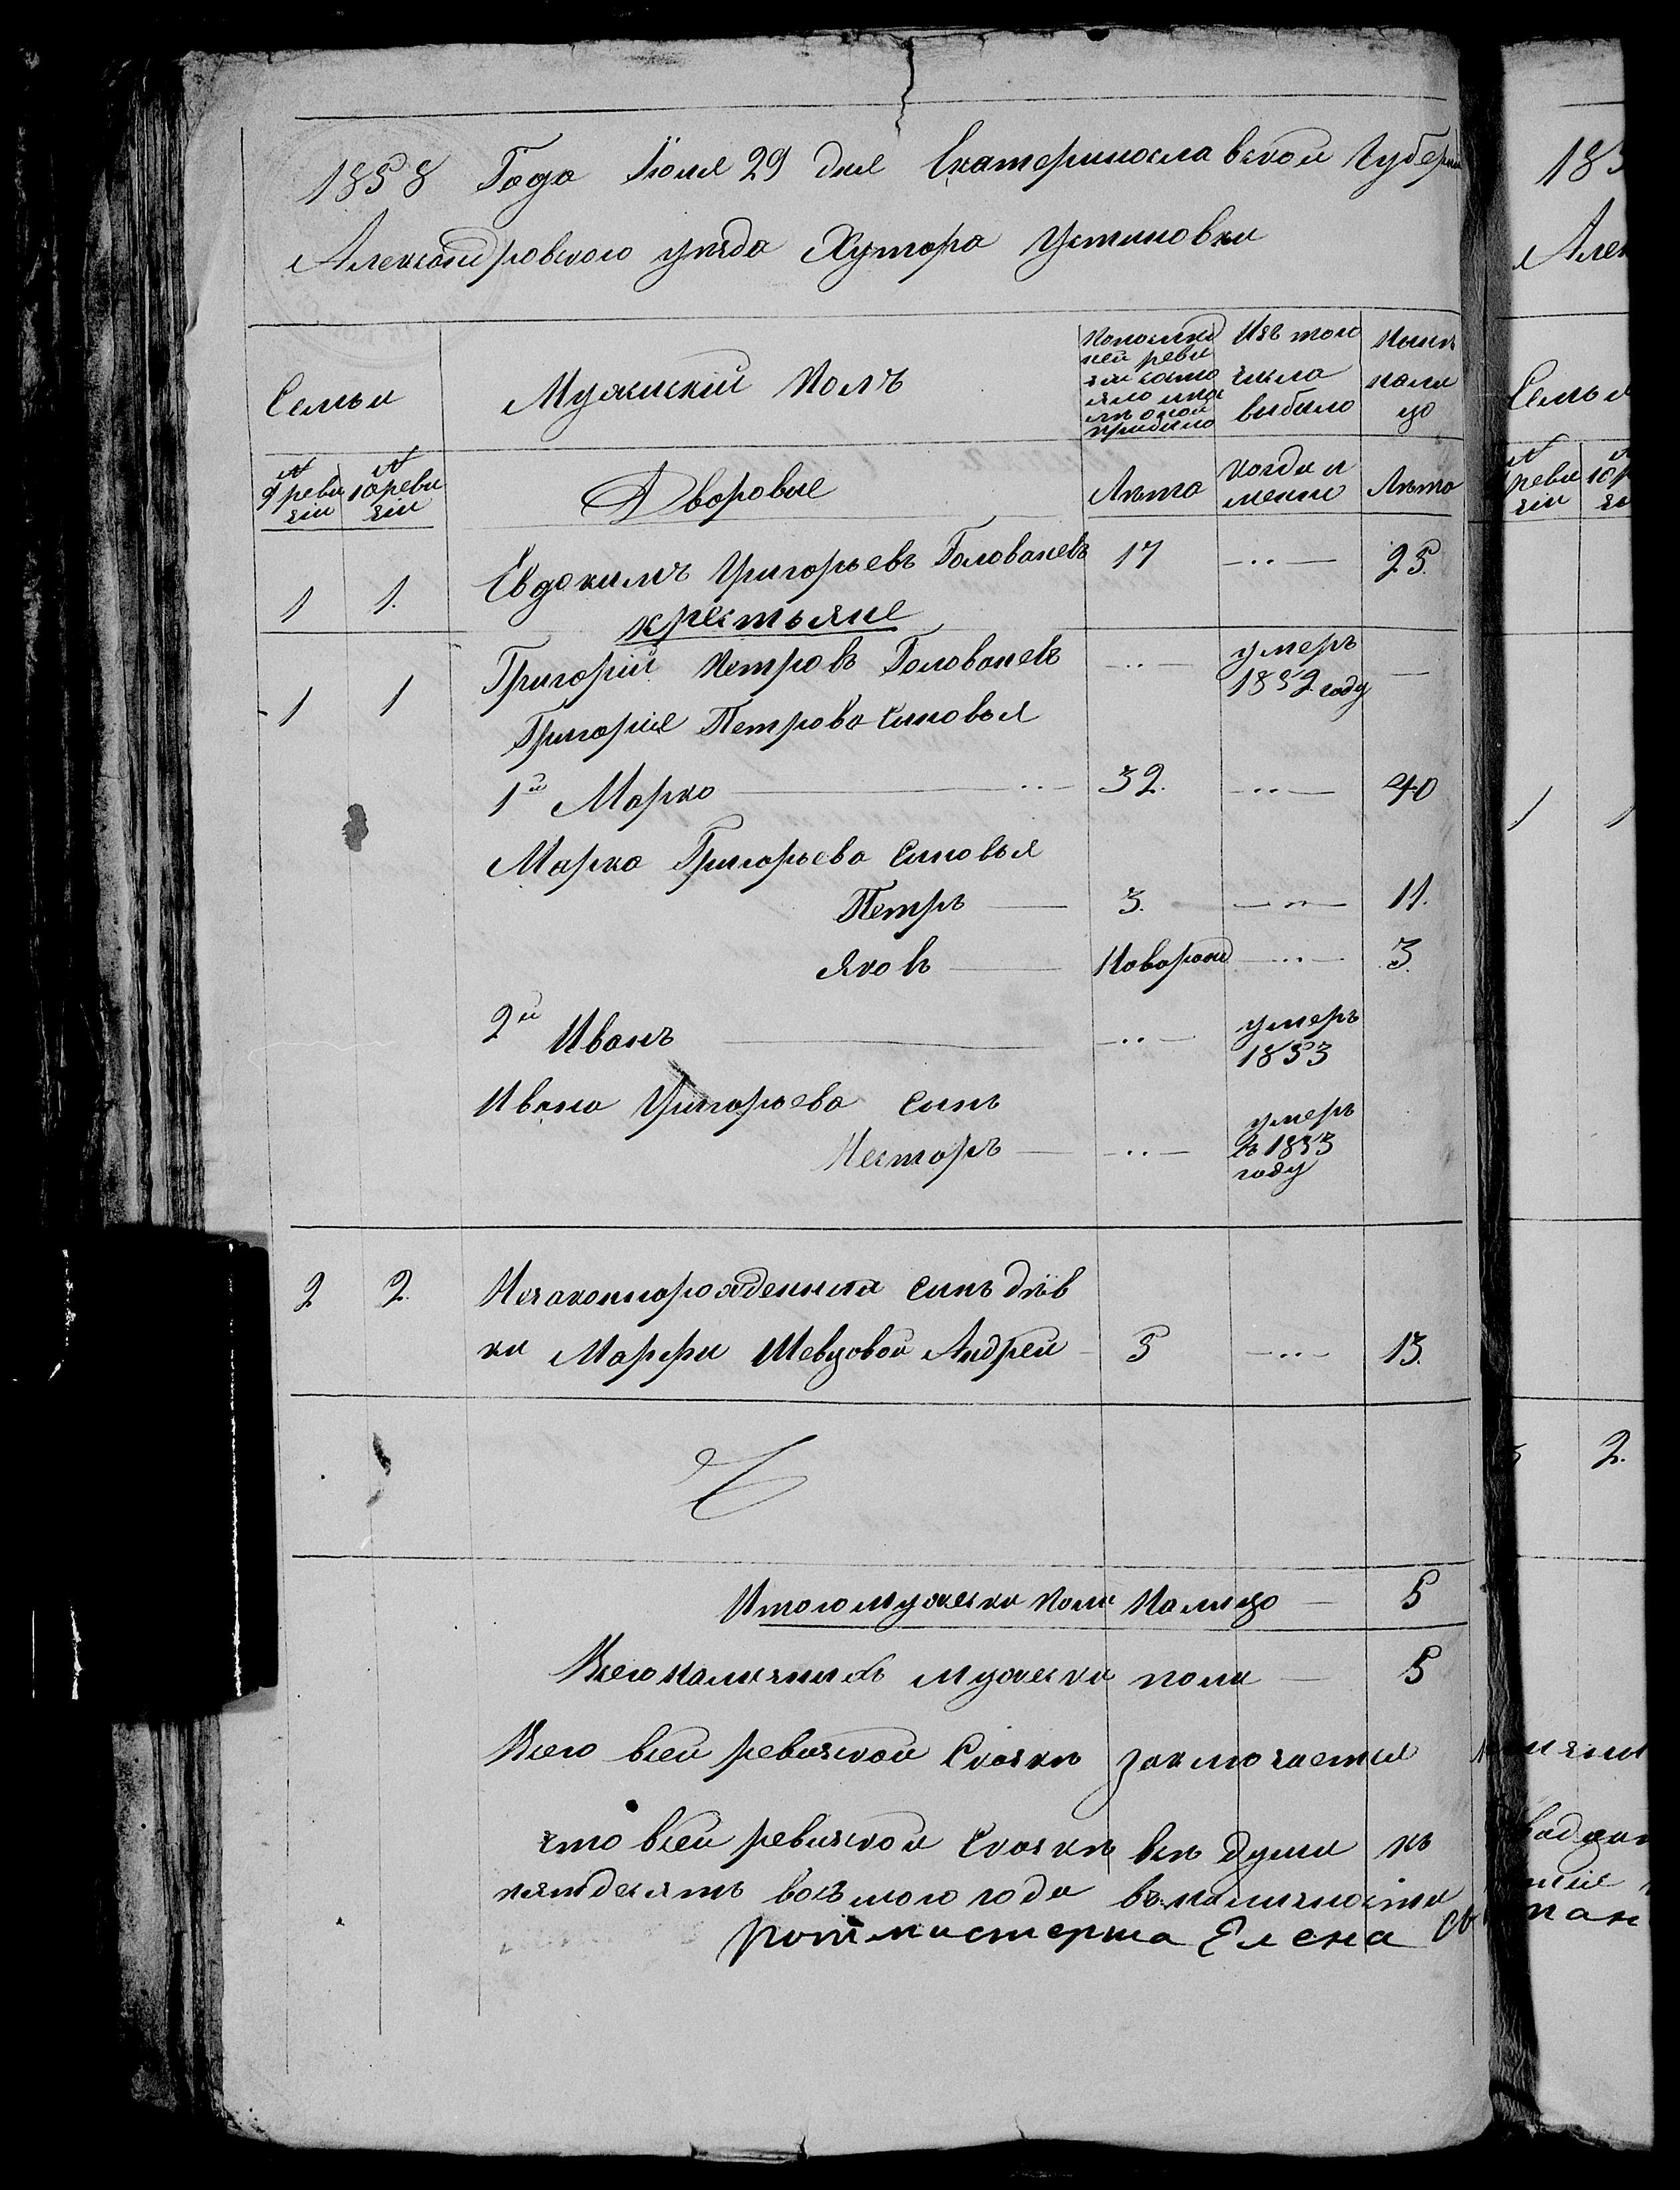 1858 Года Июля 29 дня Екатеринославской Губерніи
Александровского уѣзда Хутора Устиновки
Семьи
Мужскій Полъ
По последней ревизіи состояло или послѣ оной прибыло
Изъ того числа выбыло
Нынѣ налицо
№ 9 ревизіи
№ 10 ревизіи
Дворовые
Лѣта
Когда именно
Лѣта
1 1. Евдокимъ Григорьевъ Голованевъ 17 —··— 25.
крестьяне
1 1 Григорій Петровъ Голованевъ —··— умеръ 1852 году —
Григорія Петрова сыновья
1й Марко —··— 32. —··— 40
Марка Григорьева сыновья
Петръ — 3. —··— 11.
Яковъ — Новорожд —··— 3.
2й Иванъ — —··— умеръ 1853
Ивана Григорьева сынъ
Несторъ — —··— умеръ въ 1853 году
2 2. Незаконнорожденный сынъ дѣв
ки Марфы Шевцовой Андрей — 5 —··— 13.
Итого мужеска пола Налицо — 5
Всего наличныхъ мужеска пола — 5
Всего въ сей ревизской Сказкѣ заключается
что въ сей ревизской Сказкѣ всѣ души къ
пятдесятъ восьмого года въ наличности
Ротмистерша Елена
183
Алек
Семьи
№ 9 ревизіи
1 1
2.